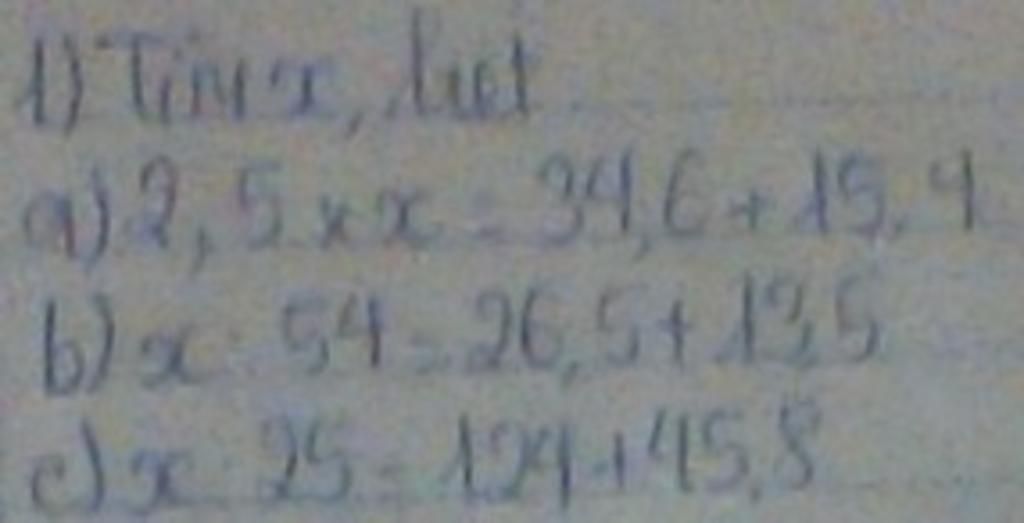 1) Tìm x, biết
a) 2,5 x x = 34,6 + 15,4
b) x : 54 = 26,5 + 13,5
c) x : 25 = 124 + 45,8